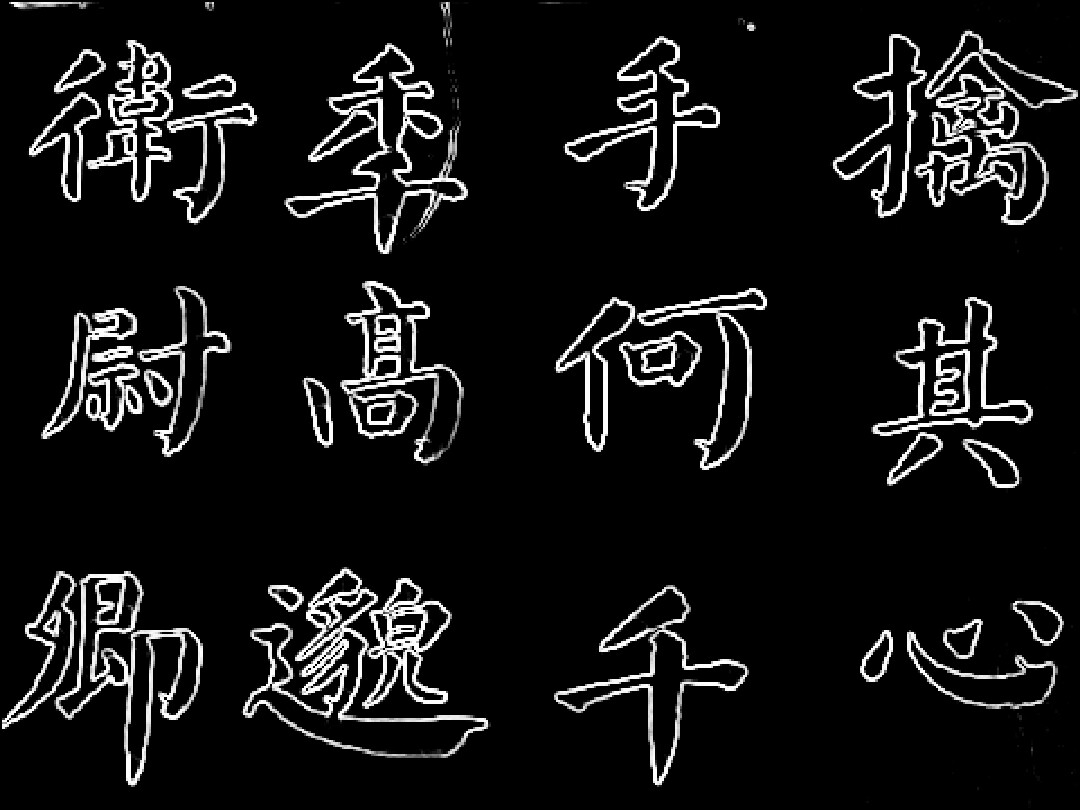 擒其心
手何千
秊高邈
衛尉卿